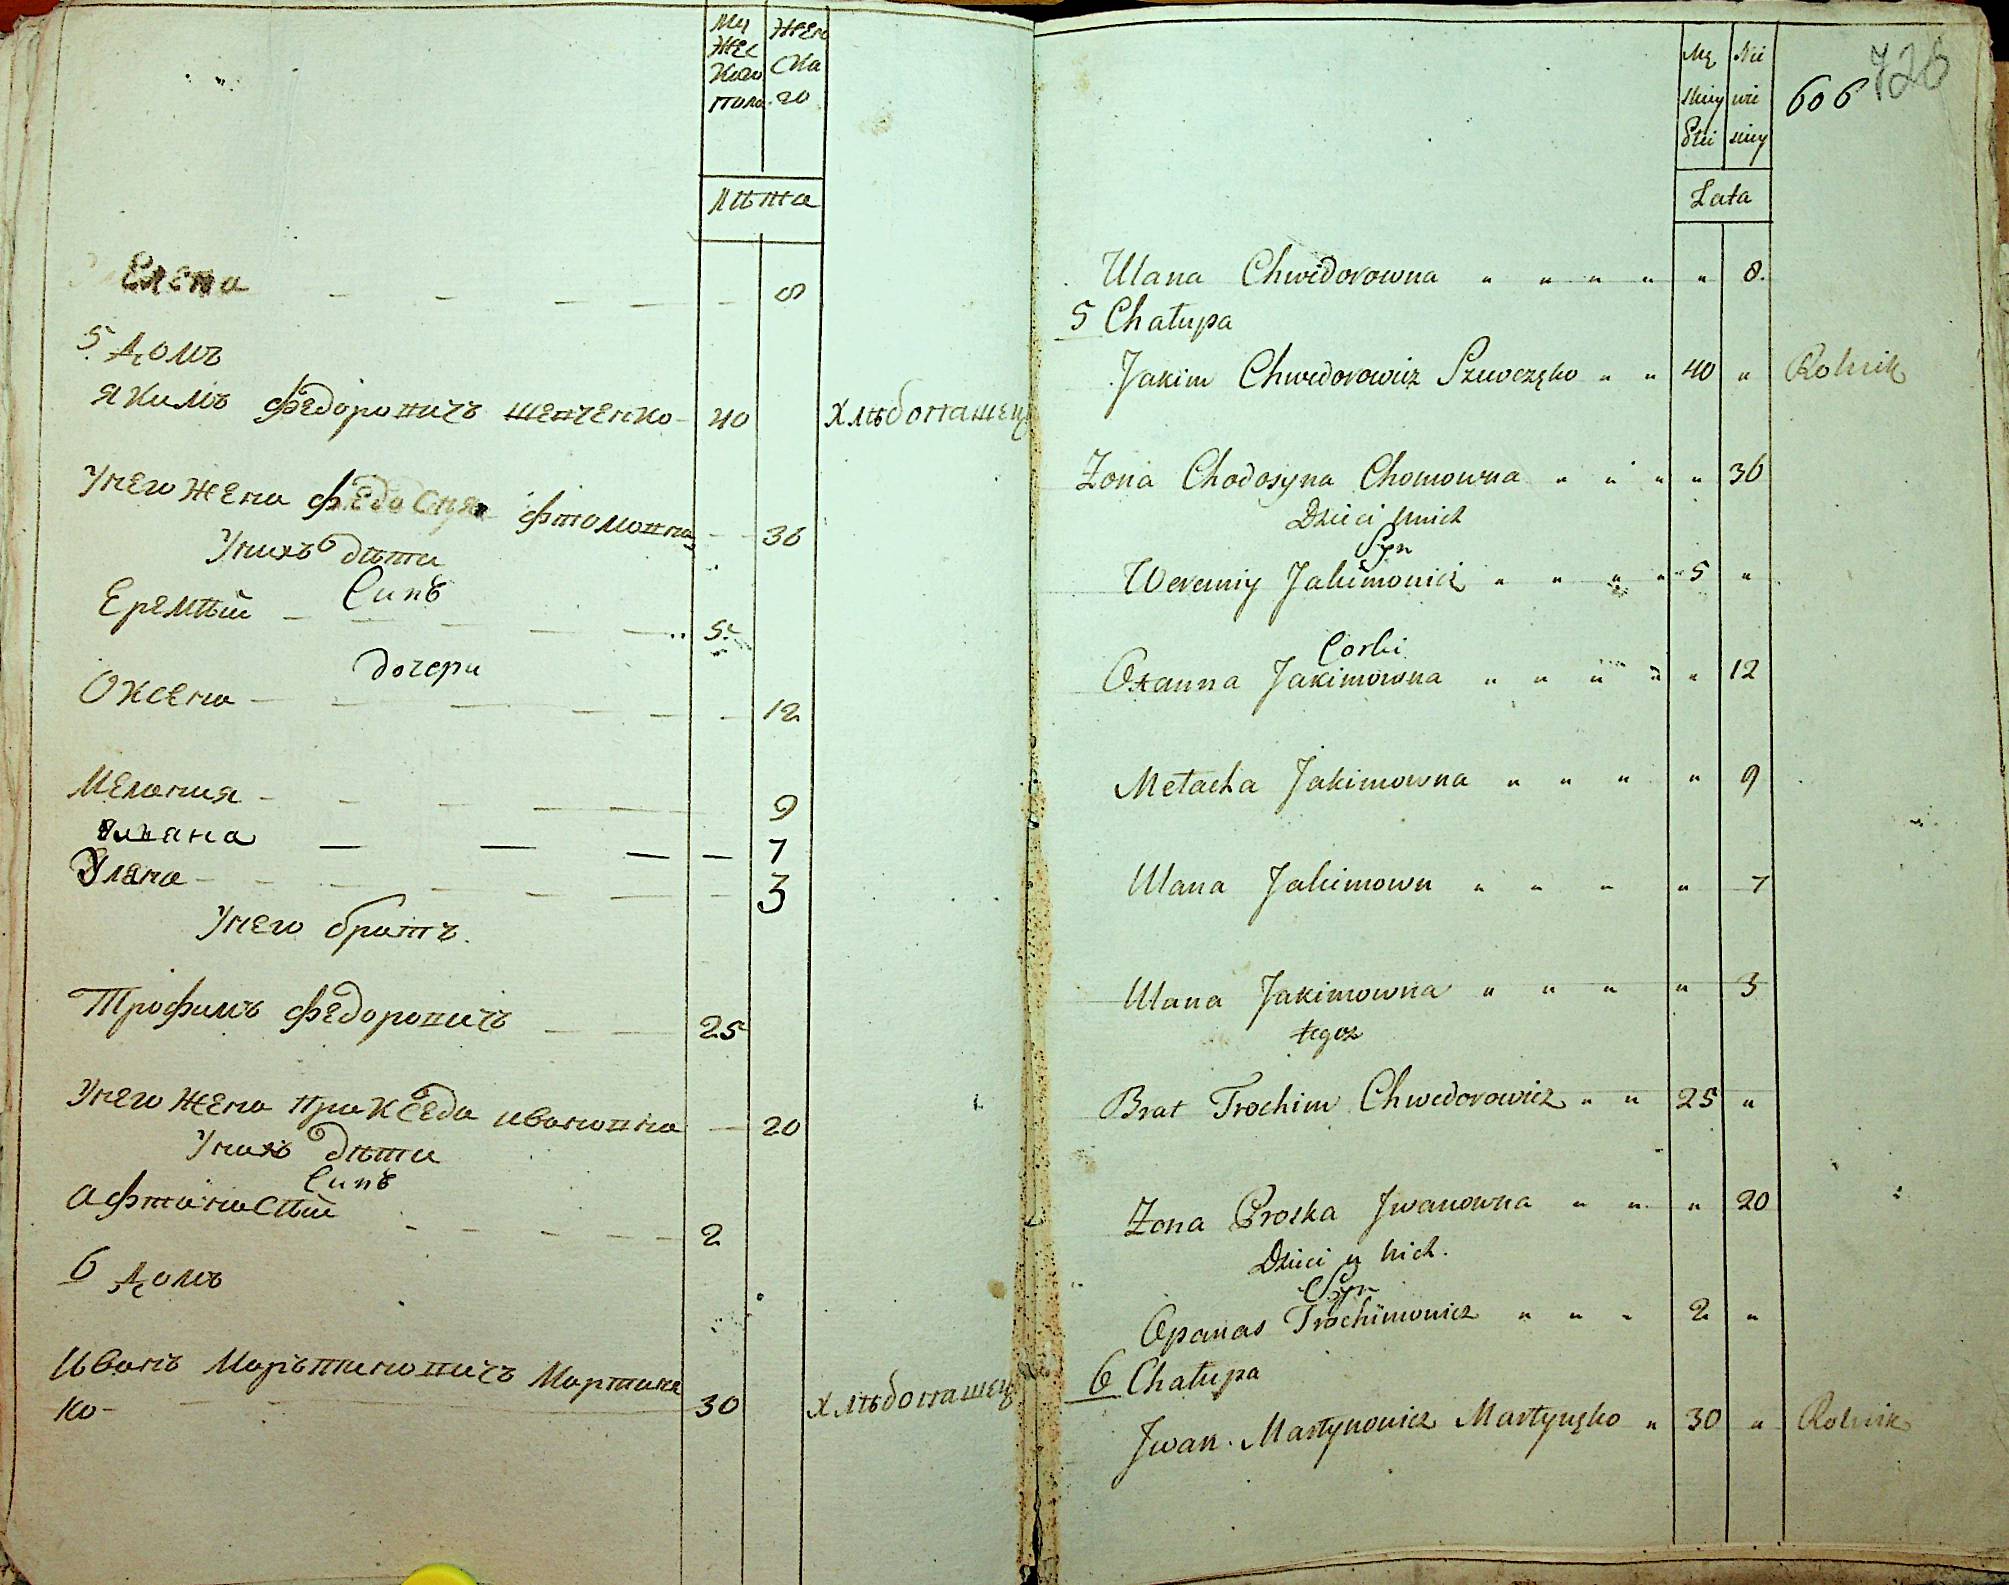 Му
жес
каго
пола
Жен
ска
го
Лѣта
Елена 8
5. Домъ
Якимъ Федоровичъ Шевченко 40 Хлѣбопашец
У него жена Федосия Фтомовна 36
У нихъ дѣти
Синъ
Еремѣй 5
дочери
Оксена 12
Мелания 9
Улияна 7
Улена 3
У него братъ
Трофимъ Федоровичъ 25
У него жена Праkседа Ивановна 20
У нихъ дѣти
Синъ
Афтанасѣй 2
6 Домъ
Иванъ Марътиновичъ Мартине
ко 30 Хлѣбопашец
Mę
skiey
Płci
Nie
wie
skiey
606 726
Lata
Ulana Chwedorowna " " " " " 8.
5 Chałupa
Jakim Chwedorowicz Szewczęko " " 40 " Rolnik
Zona Chodosyna Chomowna " " " " 36
Dzieci u nich
Syn
Weremiy Jakimowicz " " " " 5 "
Corki
Oxanna Jakimowna " " " " " 12
Mełacha Jakimowna " " " " 9
Ulana Jakimown " " " " 7
Ulana Jakimowna " " " " 3
tegoz
Brat Trochim Chwedorowicz " " 25 "
Zona Proska Jwanowna " " " 20
Dzieci u nich.
Syn
Opanas Trochimowicz " " " 2 "
6 Chałupa
Jwan Martynowicz Martynęko " 30 " Rolnik